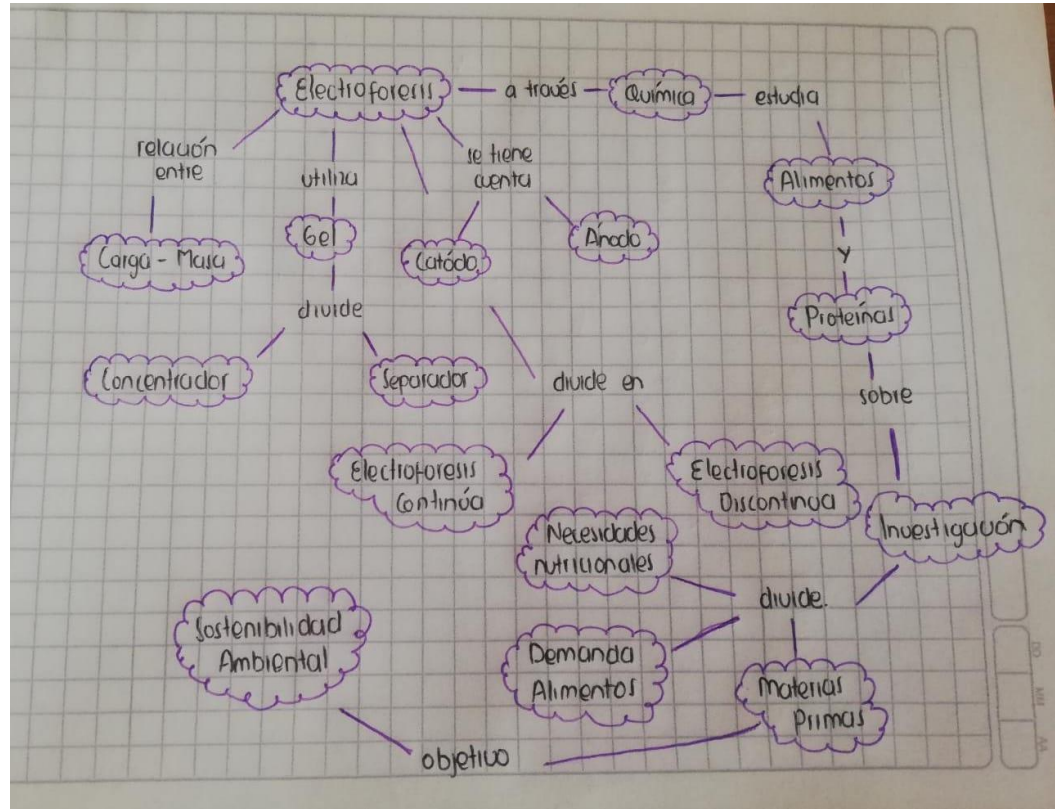 Electroforesis — a través — Química — estudia
relación
entre
utiliza
se tiene
cuenta
Alimentos
Carga - Masa
Gel
Catódo
Ánodo
y
divide
Proteínas
Concentrador
Separador
divide en
sobre
Electroforesis
Continúa
Electroforesis
Discontinua
Investigación
Necesidades
nutricionales
divide.
Sostenibilidad
Ambiental
Demanda
Alimentos
Materias
Primas
objetivo
DD
MM
AA